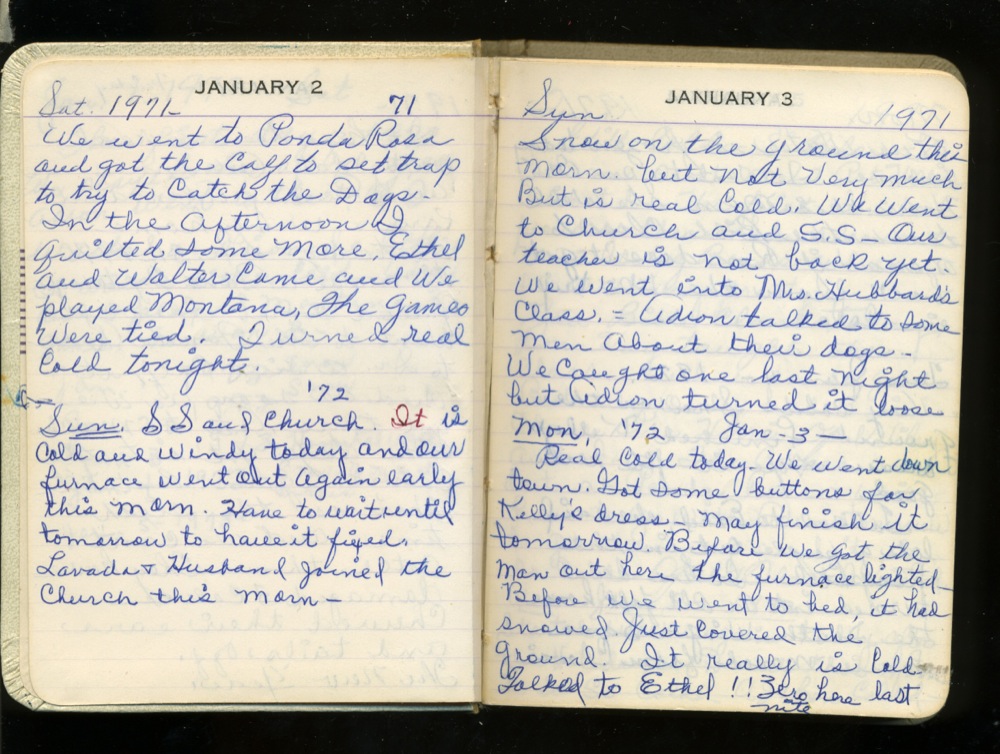 JANUARY 2
Sat. 1971 71
We went to Ponda Rosa
and got the Calf to set trap
to try to Catch the Dogs.
In the afternoon I
quilted some More. Ethel
and Walter Came and We
played Montana, The Games
Were tied. Turned real
Cold tonight.
'72
Sun. S S and Church. It is
Cold and Windy today and our
furnace went out again early
this morn. Have to wait until
tomorrow to have it fixed.
Lavada & Husband Joined the
Church this Morn -
JANUARY 3
Sun 1971
Snow on the ground this
Morn. but not Very much
But is real Cold. We Went
to Church and S.S - Our
teacher is not back yet.
We went into Mrs. Hubbard's
Class. = Adion talked to some
Men about their dogs -
We Caught one last night
but Adion turned it loose
Mon, '72 Jan - 3 -
Real Cold today. We went down
town. Got some buttons for
Kelly's dress - May finish it
tomorrow. Before we got the
Man out here the furnace lighted -
Before We went to bed it had
snowed Just Covered the
ground. It really is Cold.
Talked to Ethel !! Zero here last
nite